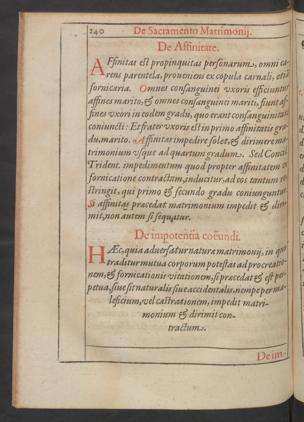 240 De Sacramento Matrimonij.
De Affinitate.
AFfinitas est propinquitas personarum, omni ca-
rens parentela, proueniens ex copula carnali, etiā
fornicaria. Omnes consanguinei vxoris efficiuntur
affines marito, & omnes consanguinei mariti, fiunt af-
fines vxori in eodem gradu, quo erant consanguinitate
coniuncti: Et frater vxoris est in primo affinitatis gra-
du, marito. Affinitas impedire solet, & dirimere ma-
trimonium vsque ad quartum gradum. Sed Concil.
Trident. impedimentum quod propter affinitatem ex
fornicatione contractum, inducitur, ad eos tantum re-
stringit, qui primo & secundo gradu coniunguntur.
Si affinitas præcedat matrimonium impedit & diri-
mit, non autem si sequatur.
De impotentia coëundi.
HÆc, quia aduersatur natura matrimonij, in quo
traditur mutua corporum potestas ad procreatio-
nem, & fornicationis vitationem, si præcedat & est per-
petua, siue sit naturalis siue accidentalis, nempe per ma-
leficium, vel castrationem, impedit matri-
monium & dirimit con-
tractum.
De im-